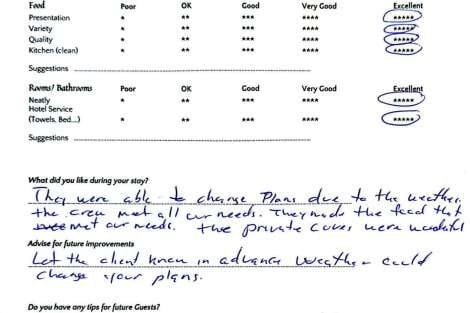 Food Poor OK Good Very Good Excellent
Presentation * ** *** **** *****
Variety * ** *** **** *****
Quality * ** *** **** *****
Kitchen (clean) * ** *** **** *****
Suggestions
Rooms/ Bathrooms Poor OK Good Very Good Excellent
Neatly * ** *** **** *****
Hotel Service
(Towels, Bed...) * ** *** **** *****
Suggestions
What did you like during your stay?
They were able to change Plans due to the weather.
the crew met all our needs. They made the food that
met our needs. the private coves were wonderful
Advise for future improvements
Let the client know in advance weather could
change your plans.
Do you have any tips for future Guests?